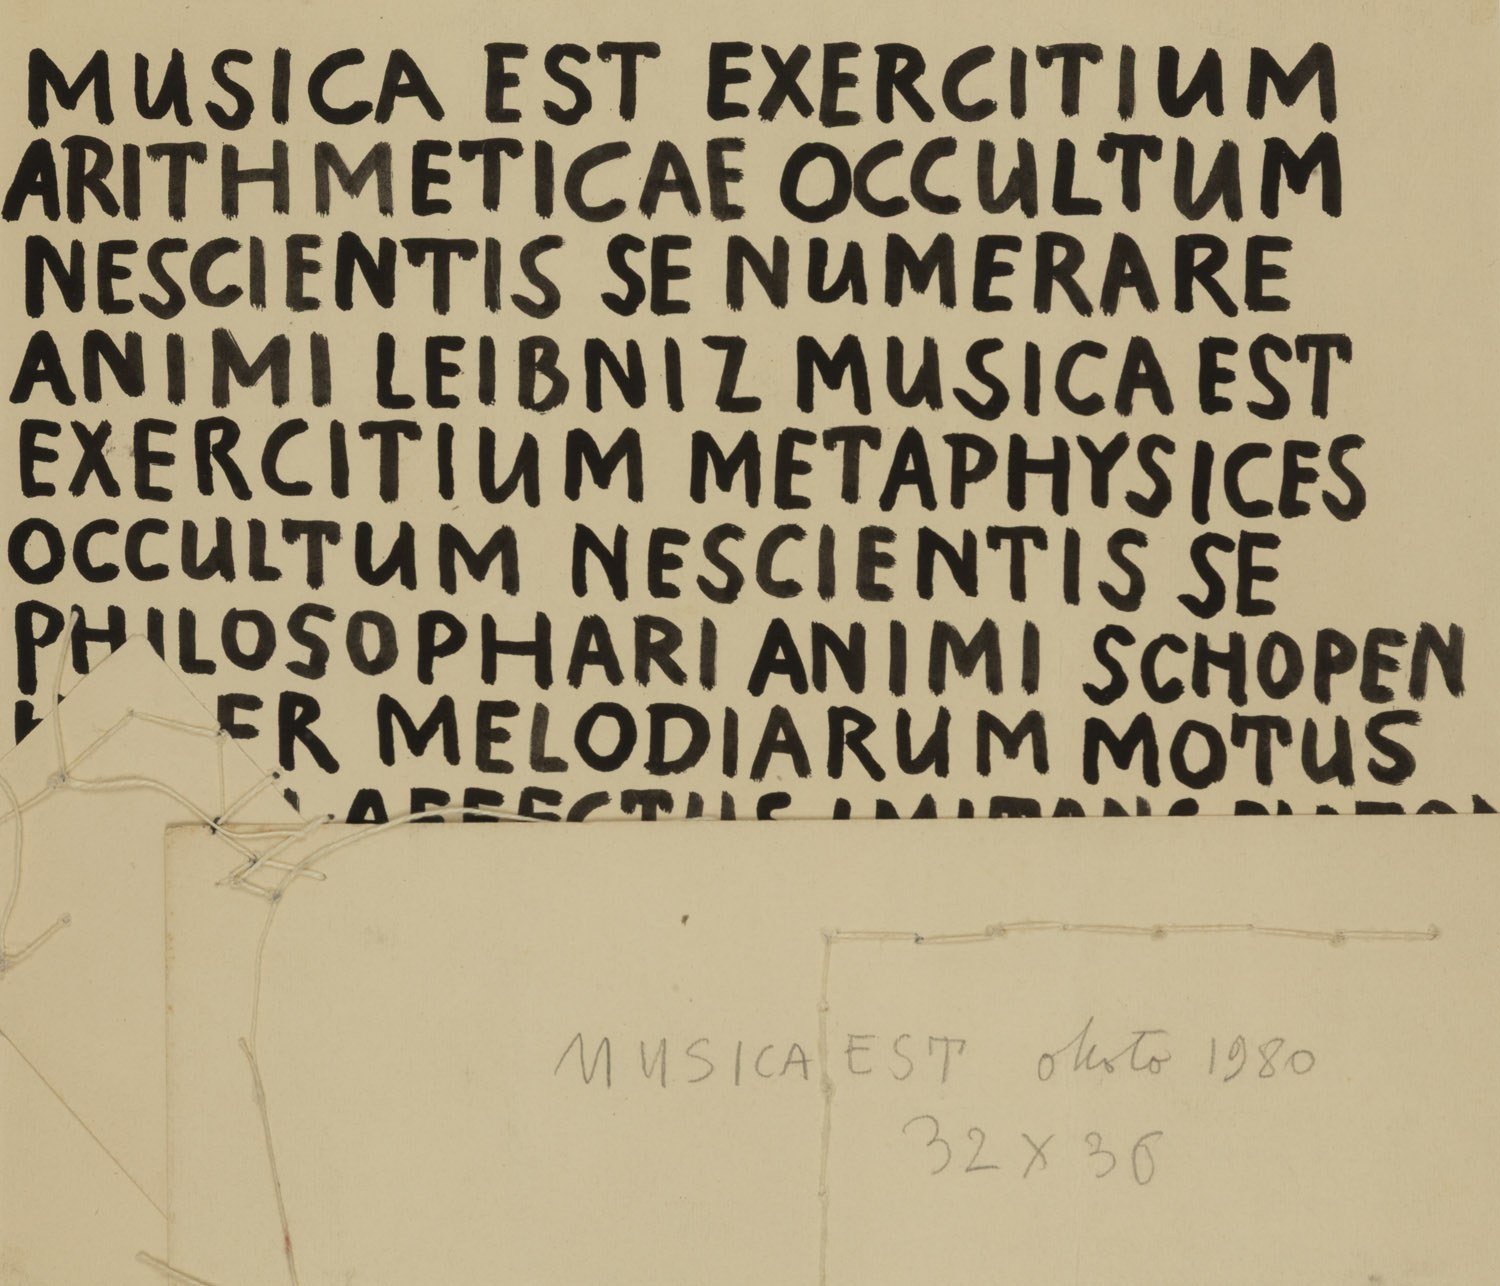 MUSICA EST EXERCITIUM
ARITHMETICAE OCCULTUM
NESCIENTIS SE NUMERARE
ANIMI LEIBNIZ MUSICA EST
EXERCITIUM METAPHYSICES
OCCULTUM NESCIENTIS SE
PHILOSOPHARI ANIMI SCHOPEN
ER MELODIARUM MOTUS
AFFECTUS IMITANS PLATON
MUSICA EST około 1980
32 x 36